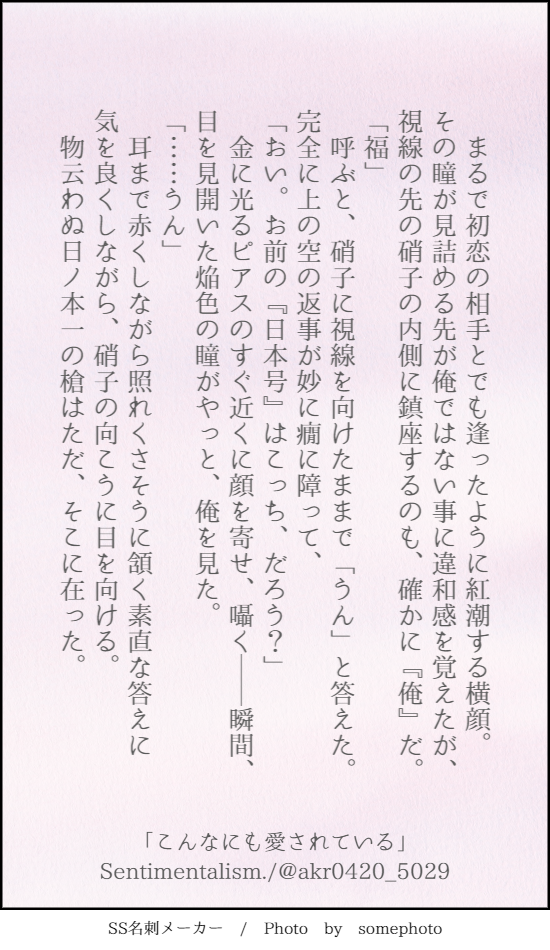 まるで初恋の相手とでも逢ったように紅潮する横顔。
その瞳が見詰める先が俺ではない事に違和感を覚えたが、
視線の先の硝子の内側に鎮座するのも、確かに『俺』だ。
「福」
　呼ぶと、硝子に視線を向けたままで「うん」と答えた。
完全に上の空の返事が妙に癇に障って、
「おい。お前の『日本号』はこっち、だろう？」
　金に光るピアスのすぐ近くに顔を寄せ、囁く――瞬間、
目を見開いた焔色の瞳がやっと、俺を見た。
「……うん」
　耳まで赤くしながら照れくさそうに頷く素直な答えに
気を良くしながら、硝子の向こうに目を向ける。
　物云わぬ日ノ本一の槍はただ、そこに在った。
「こんなにも愛されている」
Sentimentalism./@akr0420_5029
SS名刺メーカー　/　Photo　by　somephoto